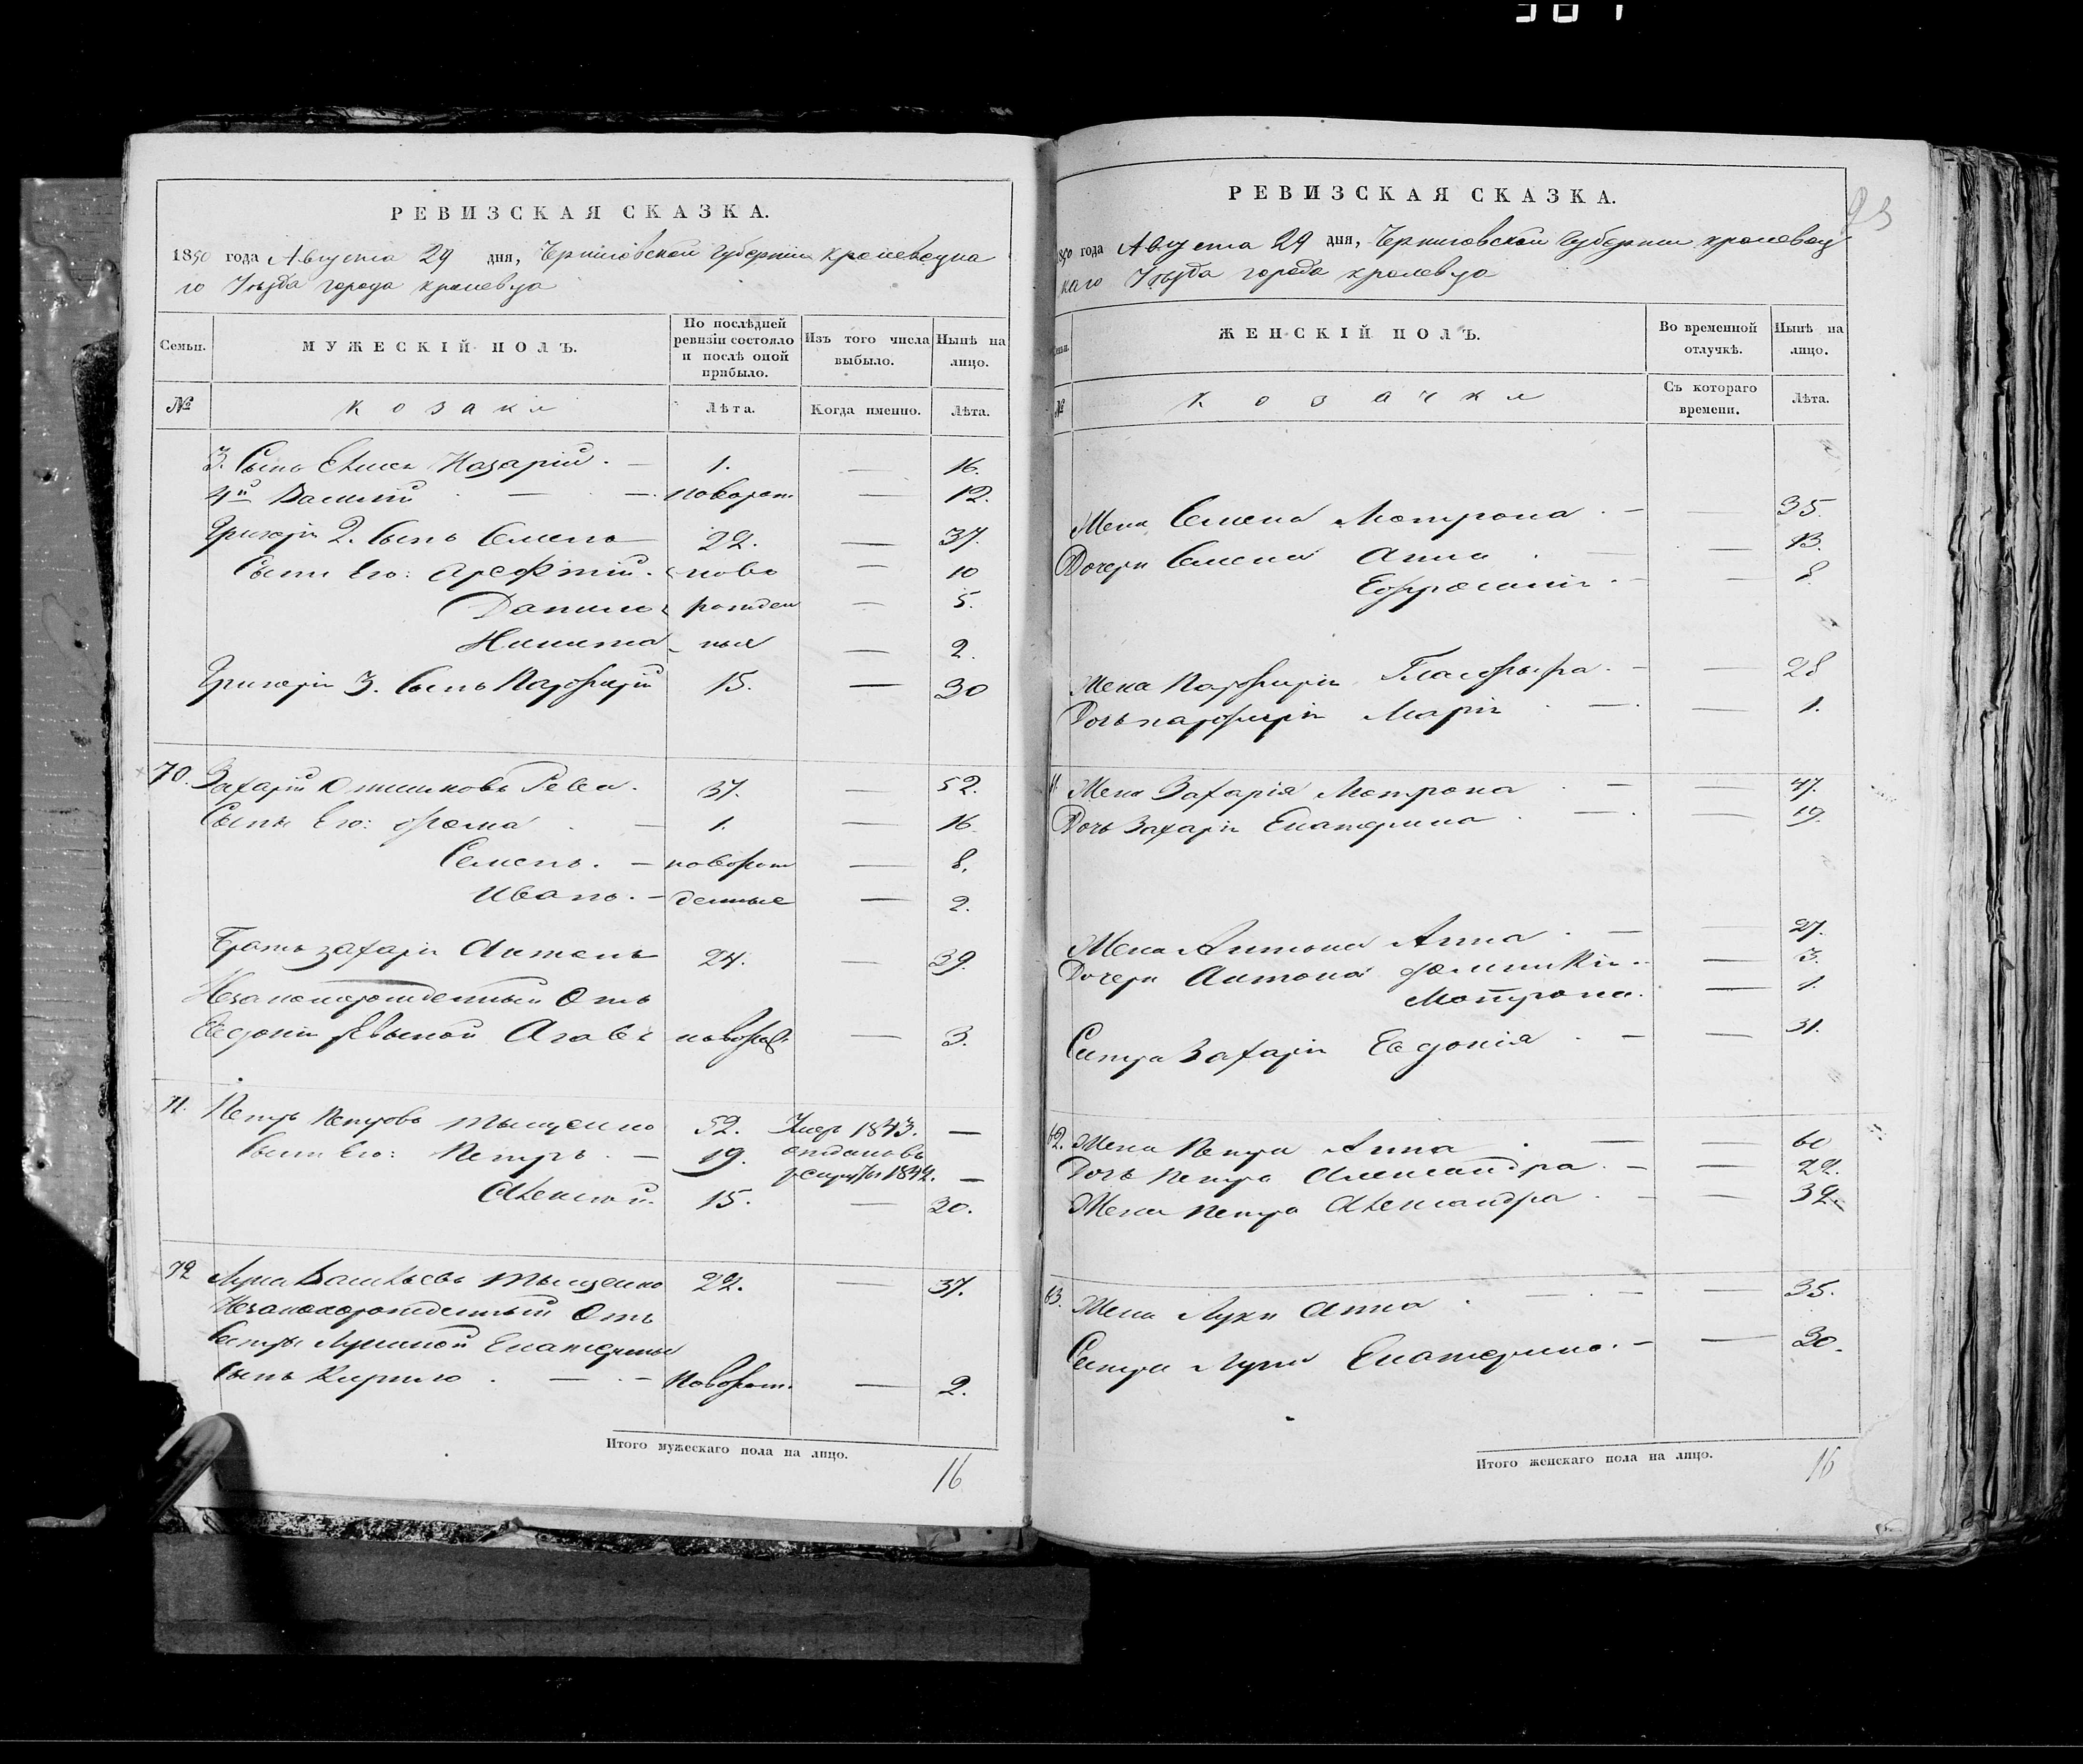 РЕВИЗСКАЯ СКАЗКА.
1850 года Августа 29 дня, Черниговской Губернии Кролевецка
го Уезда города Кролевца
Семьи. МУЖЕСКІЙ ПОЛЪ. По послѣдней ревизіи состояло и послѣ оной прибыло. Изъ того числа выбыло. Нынѣ на лицо.
№ Козаки Лѣта. Когда именно. Лѣта.
3. Сынъ Назарій. — 1. — 16.
4й Василій — — новорож — 12.
Григорія 2. Сынъ Семенъ 22. — 37.
Сыни Его: Арефтій. ново — 10
Данило рожден — 5.
Никита ныя — 2.
Григорія 3. Сынъ Парфирій 15. — 30
70. Захарій Рева. 37. — 52.
Сыны Его: Фома — 1. — 16.
Семенъ. — новорож — 8.
Иванъ. — денные — 2.
Братъ Захарія Антонъ 24. — 39.
Незаконорожденный Отъ
Евдокіи новорож. — 3.
71. Петръ Петровъ Тыщенко 52. Умер 1843. —
Сыни Его: Петръ. — 19. отданъ въ
рекруты 1844. —
Алексѣй. 15. — 30.
72 Лука Васильевъ Тыщенко 22. — 37.
Незаконорожденный Отъ
Сестры Лукиной Екатерины
Сынъ Кирило — — новорож. — 2.
Итого мужескаго пола на лицо. 16
РЕВИЗСКАЯ СКАЗКА.
1850 года Августа 29 дня, Черниговской Губернии Кролевец
каго Уѣзда города Кролевца
ЖЕНСКІЙ ПОЛЪ. Во временной отлучкѣ. Нынѣ на лицо.
№ Козачки Съ котораго времени. Лѣта.
Жена Семена Мотрона — — 35.
Дочери Семена Анна — — 13.
Ефросинія — — 8.
Жена Парфирія Гласфыра — — 28
Дочь Парфирія Марія — — 1.
Жена Захарія Мотрона — — 47.
Дочь Захарія Екатерина — — 19.
Жена Антона Анна — — 27.
Дочери Антона — 3.
Мотрона. — 1.
Сестра Захарія Евдокія — — 31.
62. Жена Петра Анна — — 60
Дочь Петра Александра — — 22.
Жена Петра Александра — — 32.
63. Жена Луки Анна — — — 35.
Сестра Луки Екатерина. — — 30.
Итого женскаго пола на лицо. 16